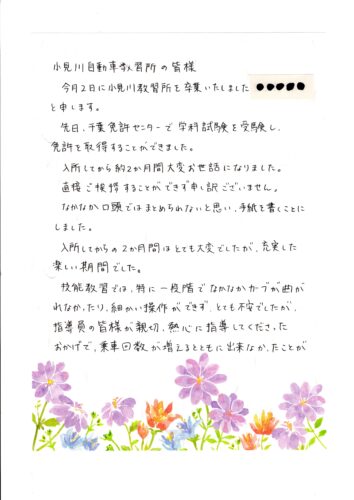 小見川自動車教習所の皆様
今月2日に小見川教習所を卒業いたしました
と申します。
先日、千葉免許センターで学科試験を受験し、
免許を取得することができました。
入所してから約2か月間大変お世話になりました。
直接ご挨拶することができず申し訳ございません。
なかなか口頭ではまとめられないと思い、手紙を書くことに
しました。
入所してからの2か月間はとても大変でしたが、充実した
楽しい期間でした。
技能教習では、特に一段階でなかなかカーブが曲が
れなかったり、細かい操作ができず、とても不安でしたが、
指導員の皆様が親切、熱心に指導してくださった
おかげで、乗車回数が増えるとともに出来なかったことが